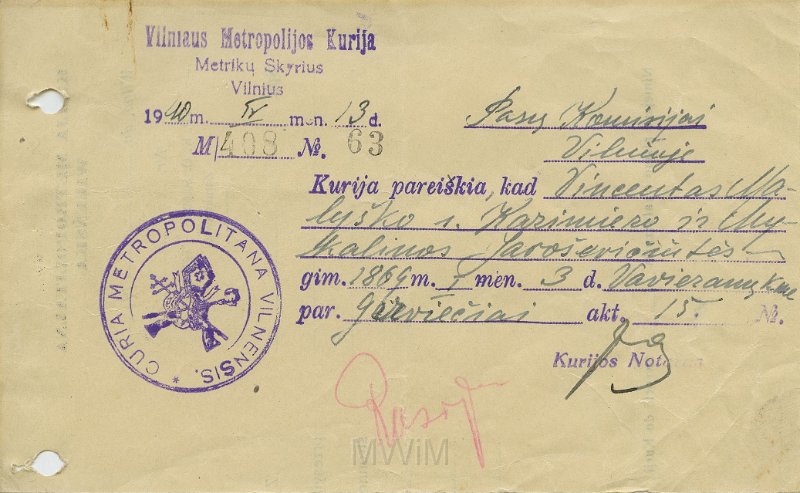 Vilniaus Metropolijos Kurija
Metrikų Skyrius
Vilnius
1940 m. IV men. 13 d.
M/408 №. 63
Pasų Komisijai
Vilniuje
Kurija pareiškia, kad Vincentas Ma-
lyško s. Kazimiero ir My-
kalinos Jaroševičiutės
gim. 1869 m. I men. 3 d. Vavieranų km
par. Gerviečiai akt. 15 №.
Kurijos Notaras
* CURIA METROPOLITANA VILNENSIS.
MWiM